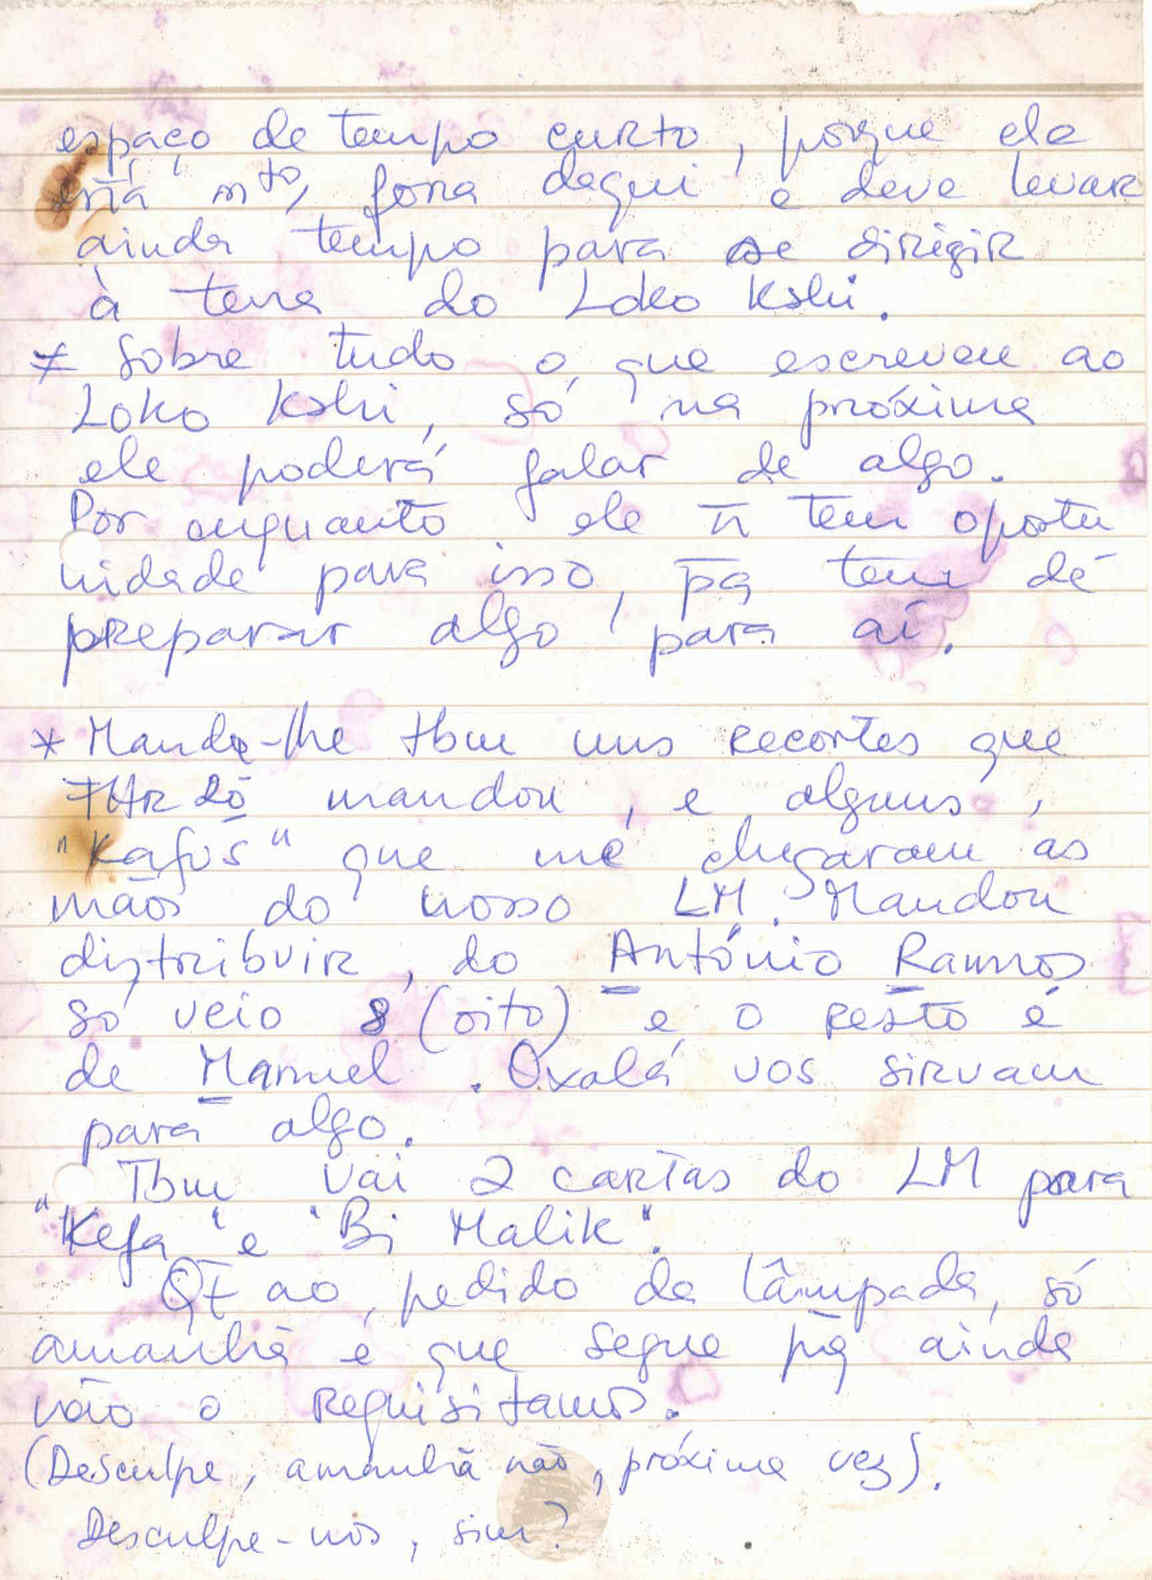 espaço de tempo curto, porque ele
está mto, fora daqui e deve levar
ainda tempo para se dirigir
à terra do Loko Kshi.
* Sobre tudo o que escreveu ao
Loko Kshi, só na próxima
ele poderá falar de algo.
Por enquanto ele ñ tem oportu
nidade para isso, pq tem de
preparar algo para aí.
* Manda-lhe tbm uns recortes que
mandou, e alguns
"Kafus" que me chegaram às
mãos do nosso LM. Mandou
distribuir, do António Ramos
só veio 8 (oito) e o resto é
de Manuel. Oxalá vos sirvam
para algo.
Tbm vai 2 cartas do LM para
"Kefa" e "Bi Malik".
Qt ao pedido da lâmpada, só
amanhã é que segue pq ainda
não o requisitamos.
(Desculpe, amanhã não, próxima vez).
Desculpe-nos, sim?